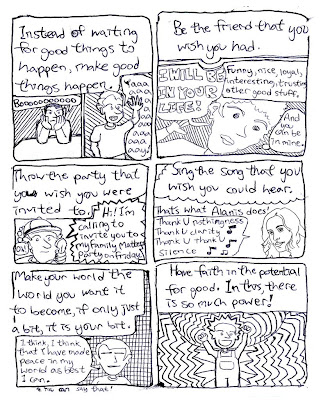 Instead of waiting
for good things to
happen, make good
things happen.
Booooooooooo
Yaaa
aaaa
aaa
aaa
aay!
Be the friend that you
wish you had.
I WILL BE
IN YOUR
LIFE!
Funny, nice, loyal,
interesting, trusting
other good stuff.
And
you
can be
in mine.
Throw the party that
you wish you were
invited to.
Hi! I'm
calling to
invite you to
my Family Matters
party on friday!
Sing the song that you
wish you could hear.
That's what Alanis does!
Thank U nothingness
Thank U clarity
Thank U Thank U
silence
Make your world the
world you want it
to become, if only just
a bit, it is your bit.
I think, I think
that I have made
peace in my
world as best
I can.
say that!
Have faith in the potential
for good. In this, there
is so much power!